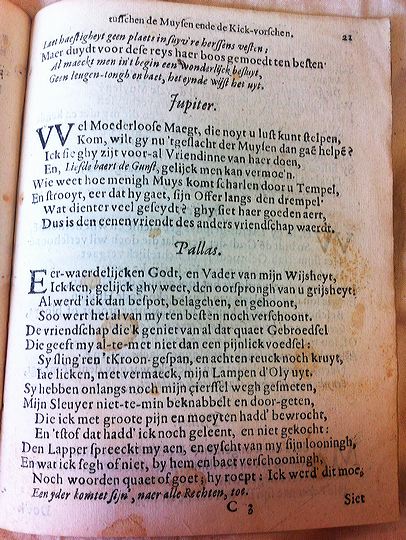 tusschen de Muysen ende de Kick-vorschen. 21
Laet haestigheyt geen plaets in suyv're herssens vesten:
Maer duydt voor dese reys haer boos gemoedt ten besten
Al maeckt men in't begin een wonderlijck besluyt,
Geen leugen-tongh en baet, het eynde wijst het uyt.
Jupiter.
VVel Moederloose Maegt, die noyt u lust kunt stelpen,
Kom, wilt gy nu 'tgeslacht der Muysen dan gaē helpē?
Ick sie ghy zijt voor-al Vriendinne van haer doen,
En, Liefde baert de Gunst, gelijck men kan vermoe'n.
Wie weet hoe menigh Muys komt scharlen door u Tempel,
En strooyt, eer dat hy gaet, sijn Offer langs den drempel
Wat dienter veel geseydt? ghy siet haer goeden aert,
Dus is den eenen vriendt des anders vriendschap waerdt.
Pallas.
Eer-waerdelijcken Godt, en Vader van mijn Wijsheyt,
Ick ken, gelijck ghy weet, den oorsprongh van u grijsheyt;
Al werd' ick dan bespot, belagchen, en gehoont,
Soo wert het al van my ten besten noch verschoont.
De vriendschap die'k geniet van al dat quaet Gebroedsel
Die geeft my al-te-met niet dan een pijnlick voedsel:
Sy sling'ren 'tKroon-gespan, en achten reuck noch kruyt,
Iae licken, met vermaeck, mijn Lampen d'Oly uyt.
Sy hebben onlangs noch mijn çiersel wegh gesmeten,
Mijn Sleuyer niet-te-min beknabbelt en door-geten,
Die ick met groote pijn en moeyten hadd' bewrocht,
En 'tstof dat hadd' ick noch geleent, en niet gekocht:
Den Lapper spreeckt my aen, en eyscht van my sijn looningh,
En wat ick segh of niet, by hem en baet verschooningh,
Noch woorden quaet of goet; hy roept: Ick werd' dit moe,
Een yder komt et sijn', naer alle Rechten, toe.
C 3 Siet